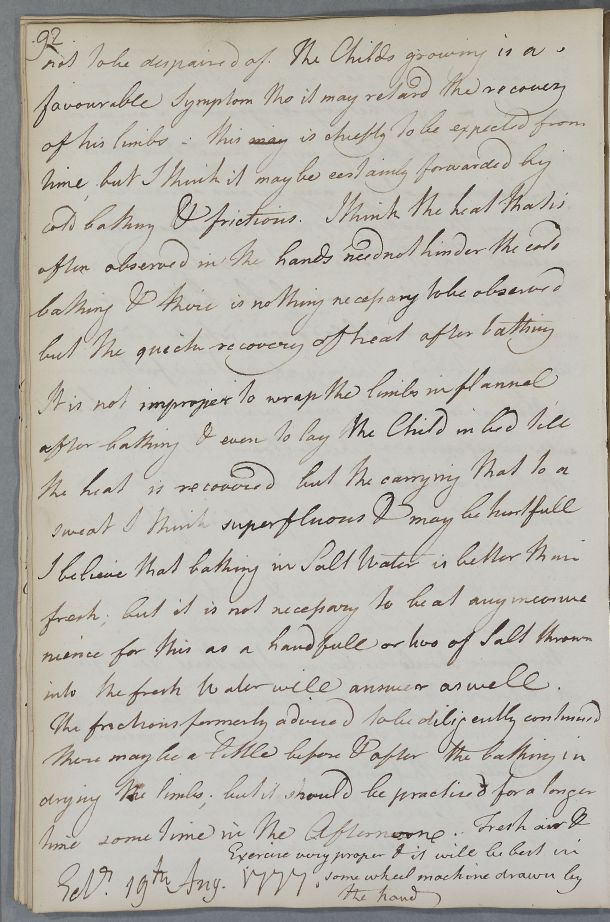 92.
not to be despaired of. The Childs growing is a
favourable Symptom tho it may retard the recovery
of his limbs - this may is chiefly to be expected from
time, but I think it may be certainly forwarded by
cold bathing & frictions. I think the heat that is
often observed in the hands need not hinder the cold
bathing & there is nothing necessary to be observed
but the quick recovery of heat after bathing
It is not improper to wrap the limbs in flannel
after bathing & even to lay the Child in bed till
the heat is recovered but the carrying that to a
sweat I think superfluous & may be hurtfull
I believe that bathing in Salt Water is better than
fresh; but it is not necessary to be at any inconve
nience for this as a handfull or two of Salt thrown
into the fresh Water will answer as well.
The frictions formerly advised to be diligently continued
there may be a little before & after the bathing in
drying the limbs; but it should be practised for a longer
time some time in the Afternoone. Fresh air &
Exercise very proper & it will be best in
some wheel machine drawn by
the hand
Ed. 19th Aug. 1777.